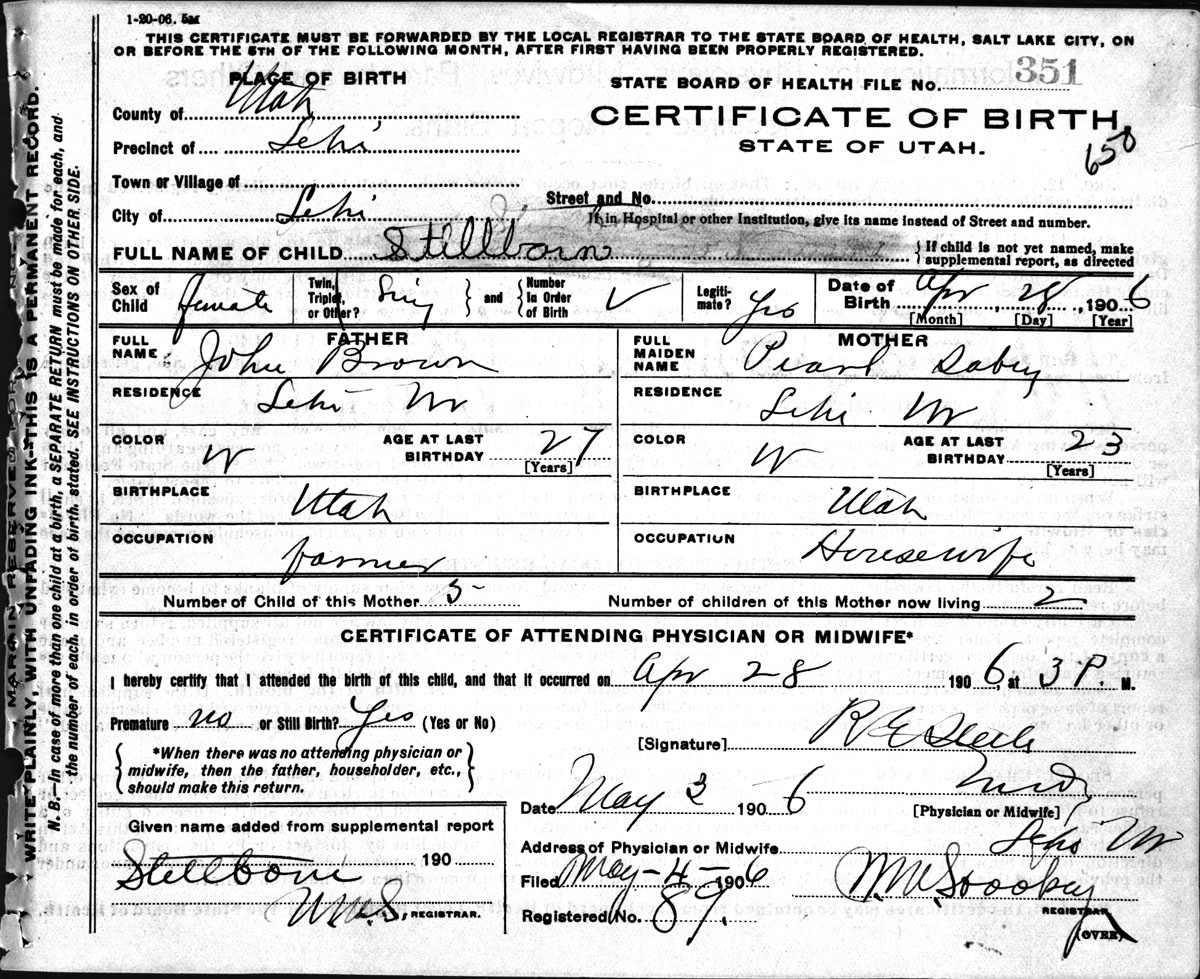 1-20-06. 5M
THIS CERTIFICATE MUST BE FORWARDED BY THE LOCAL REGISTRAR TO THE STATE BOARD OF HEALTH, SALT LAKE CITY, ON
OR BEFORE THE 5TH OF THE FOLLOWING MONTH, AFTER FIRST HAVING BEEN PROPERLY REGISTERED.
PLACE OF BIRTH
STATE BOARD OF HEALTH FILE NO. 351
County of Utah
CERTIFICATE OF BIRTH
650
Precinct of Lehi
STATE OF UTAH.
Town or Village of
Street and No.
City of Lehi
If in Hospital or other Institution, give its name instead of Street and number.
FULL NAME OF CHILD Stillborn
{If child is not yet named, make
supplemental report, as directed
Sex of Child female
Twin, Triplet, or Other? Sing } and { Number In Order of Birth
Legitimate? Yes
Date of Birth Apr 28, 1906
[Month] [Day] [Year]
FATHER
FULL NAME John Brown
MOTHER
FULL MAIDEN NAME Pearl Sabey
RESIDENCE Lehi Ut
RESIDENCE Lehi Ut
COLOR W
AGE AT LAST BIRTHDAY 27
[Years]
COLOR W
AGE AT LAST BIRTHDAY 23
[Years]
BIRTHPLACE Utah
BIRTHPLACE Utah
OCCUPATION farmer
OCCUPATION Housewife
Number of Child of this Mother 5
Number of children of this Mother now living 2
CERTIFICATE OF ATTENDING PHYSICIAN OR MIDWIFE*
I hereby certify that I attended the birth of this child, and that it occurred on Apr 28 1906, at 3 P. M.
Premature no or Still Birth? Yes (Yes or No)
[Signature] R E Steele
{*When there was no attending physician or
midwife, then the father, householder, etc.,
should make this return.}
M.D.
Date May 3 1906
[Physician or Midwife]
Given name added from supplemental report
Address of Physician or Midwife Lehi Ut
190
Stillborn
Filed May-4-1906
W.W.S., REGISTRAR.
Registered No. 89.
REGISTRAR
(OVER)
MARGIN RESERVED FOR
WRITE PLAINLY, WITH UNFADING INK--THIS IS A PERMANENT RECORD.
N. B.—In case of more than one child at a birth, a SEPARATE RETURN must be made for each, and
the number of each, in order of birth, stated. SEE INSTRUCTIONS ON OTHER SIDE.